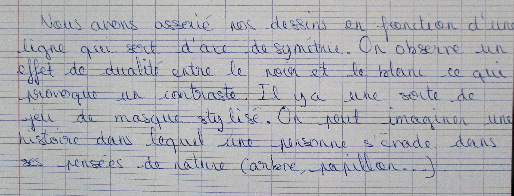 Nous avons associé nos dessins en fonction d'une
ligne qui sert d'axe de symétrie. On observe un
effet de dualité entre le noir et le blanc ce qui
provoque un contraste. Il y a une sorte de
jeu de masque stylisé. On peut imaginer une
histoire dans lequel une personne s'évade dans
ses pensées de nature (arbre, papillon...)